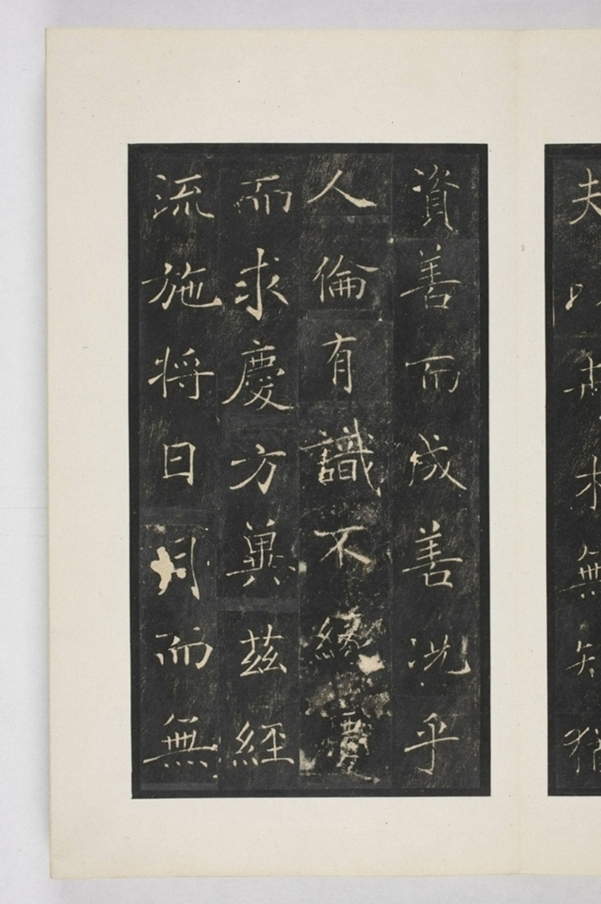 夫以卉木無知猶
資善而成善况乎
人倫有識不緣慶
而求慶方冀茲經
流施将日月而無